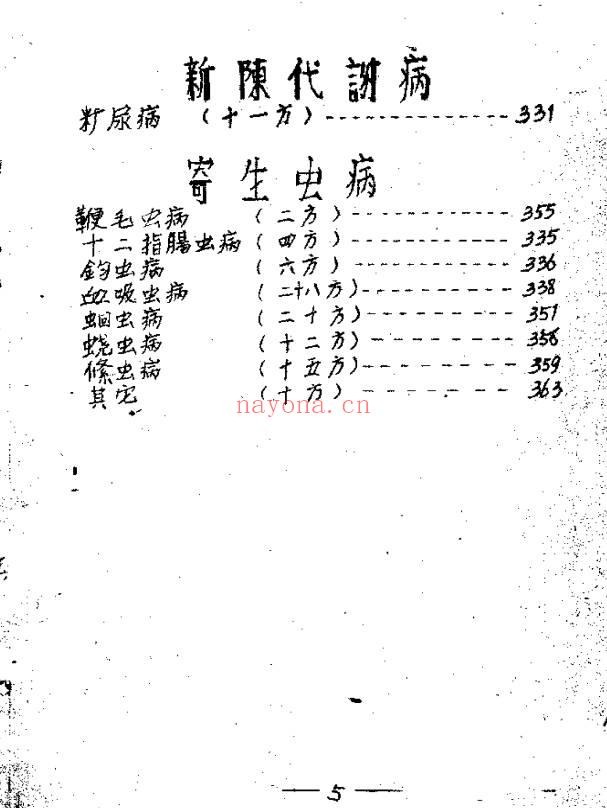 新陳代謝病
籵尿病 （十一方）---------------331
寄生虫病
鞭毛虫病 （二方）-------------355
十二指腸虫病（四方）-------------335
鈎虫病 （六方）-------------336
血吸虫病 （二十八方）-------------338
蛔虫病 （二十方）-------------351
蛲虫病 （十二方）-------------356
絛虫病 （十五方）-------------359
其它 （十方）-------------363
nayona.cn
—5—